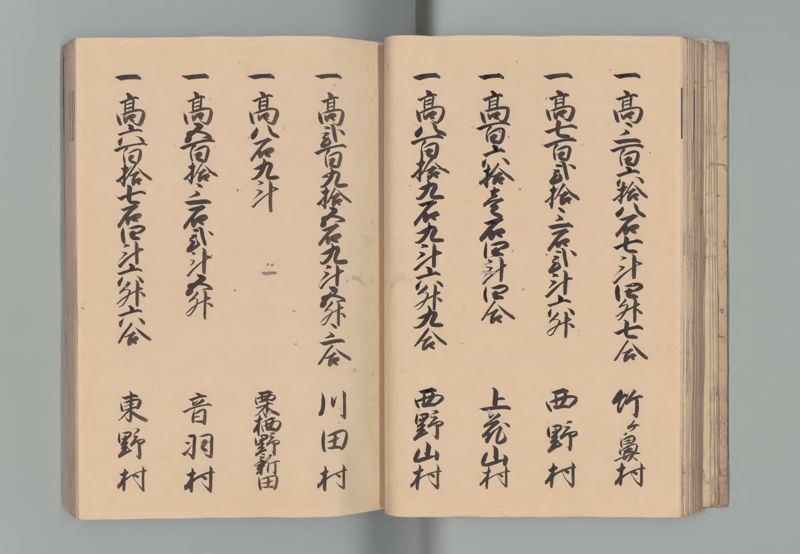 一高三百六拾八石七斗四升七合 竹ヶ鼻村
一高七百弐拾三石弐斗六升 西野村
一高百六拾壱石四斗四合 上花山村
一高八百拾九石九斗六升九合 西野山村
一高弐百九拾五石九斗五升三合 川田村
一高八石九斗 栗栖野新田
一高五百拾三石弐斗五升 音羽村
一高六百拾七石四斗六升六合 東野村